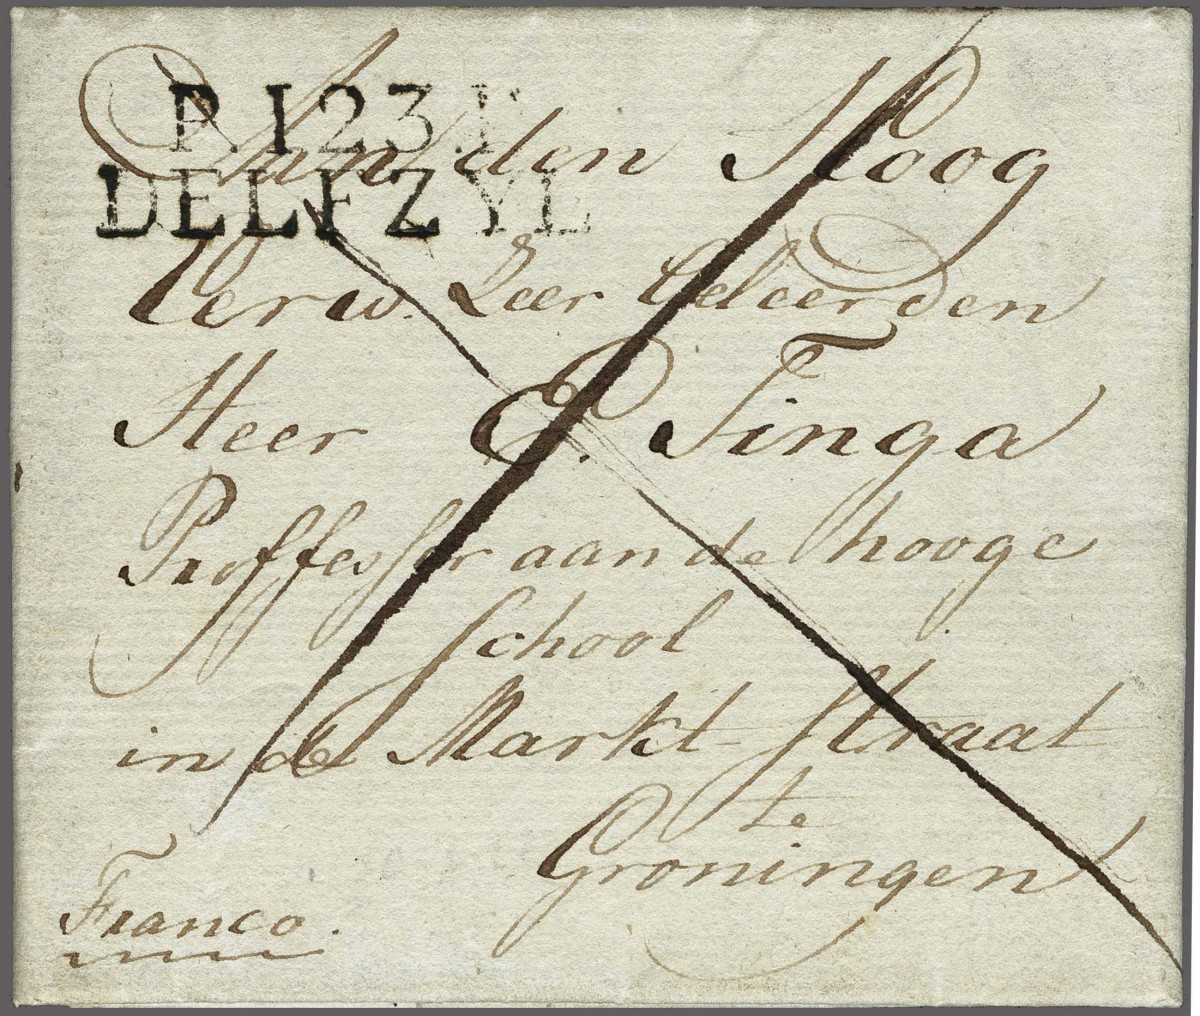 P.123.P.
DELFZYL
Aan den Hoog
Eerw. Zeer Geleerden
Heer E. Tinga
Proffesser aan de hooge
School
in de Markt-Straat
te
Groningen
Franco.